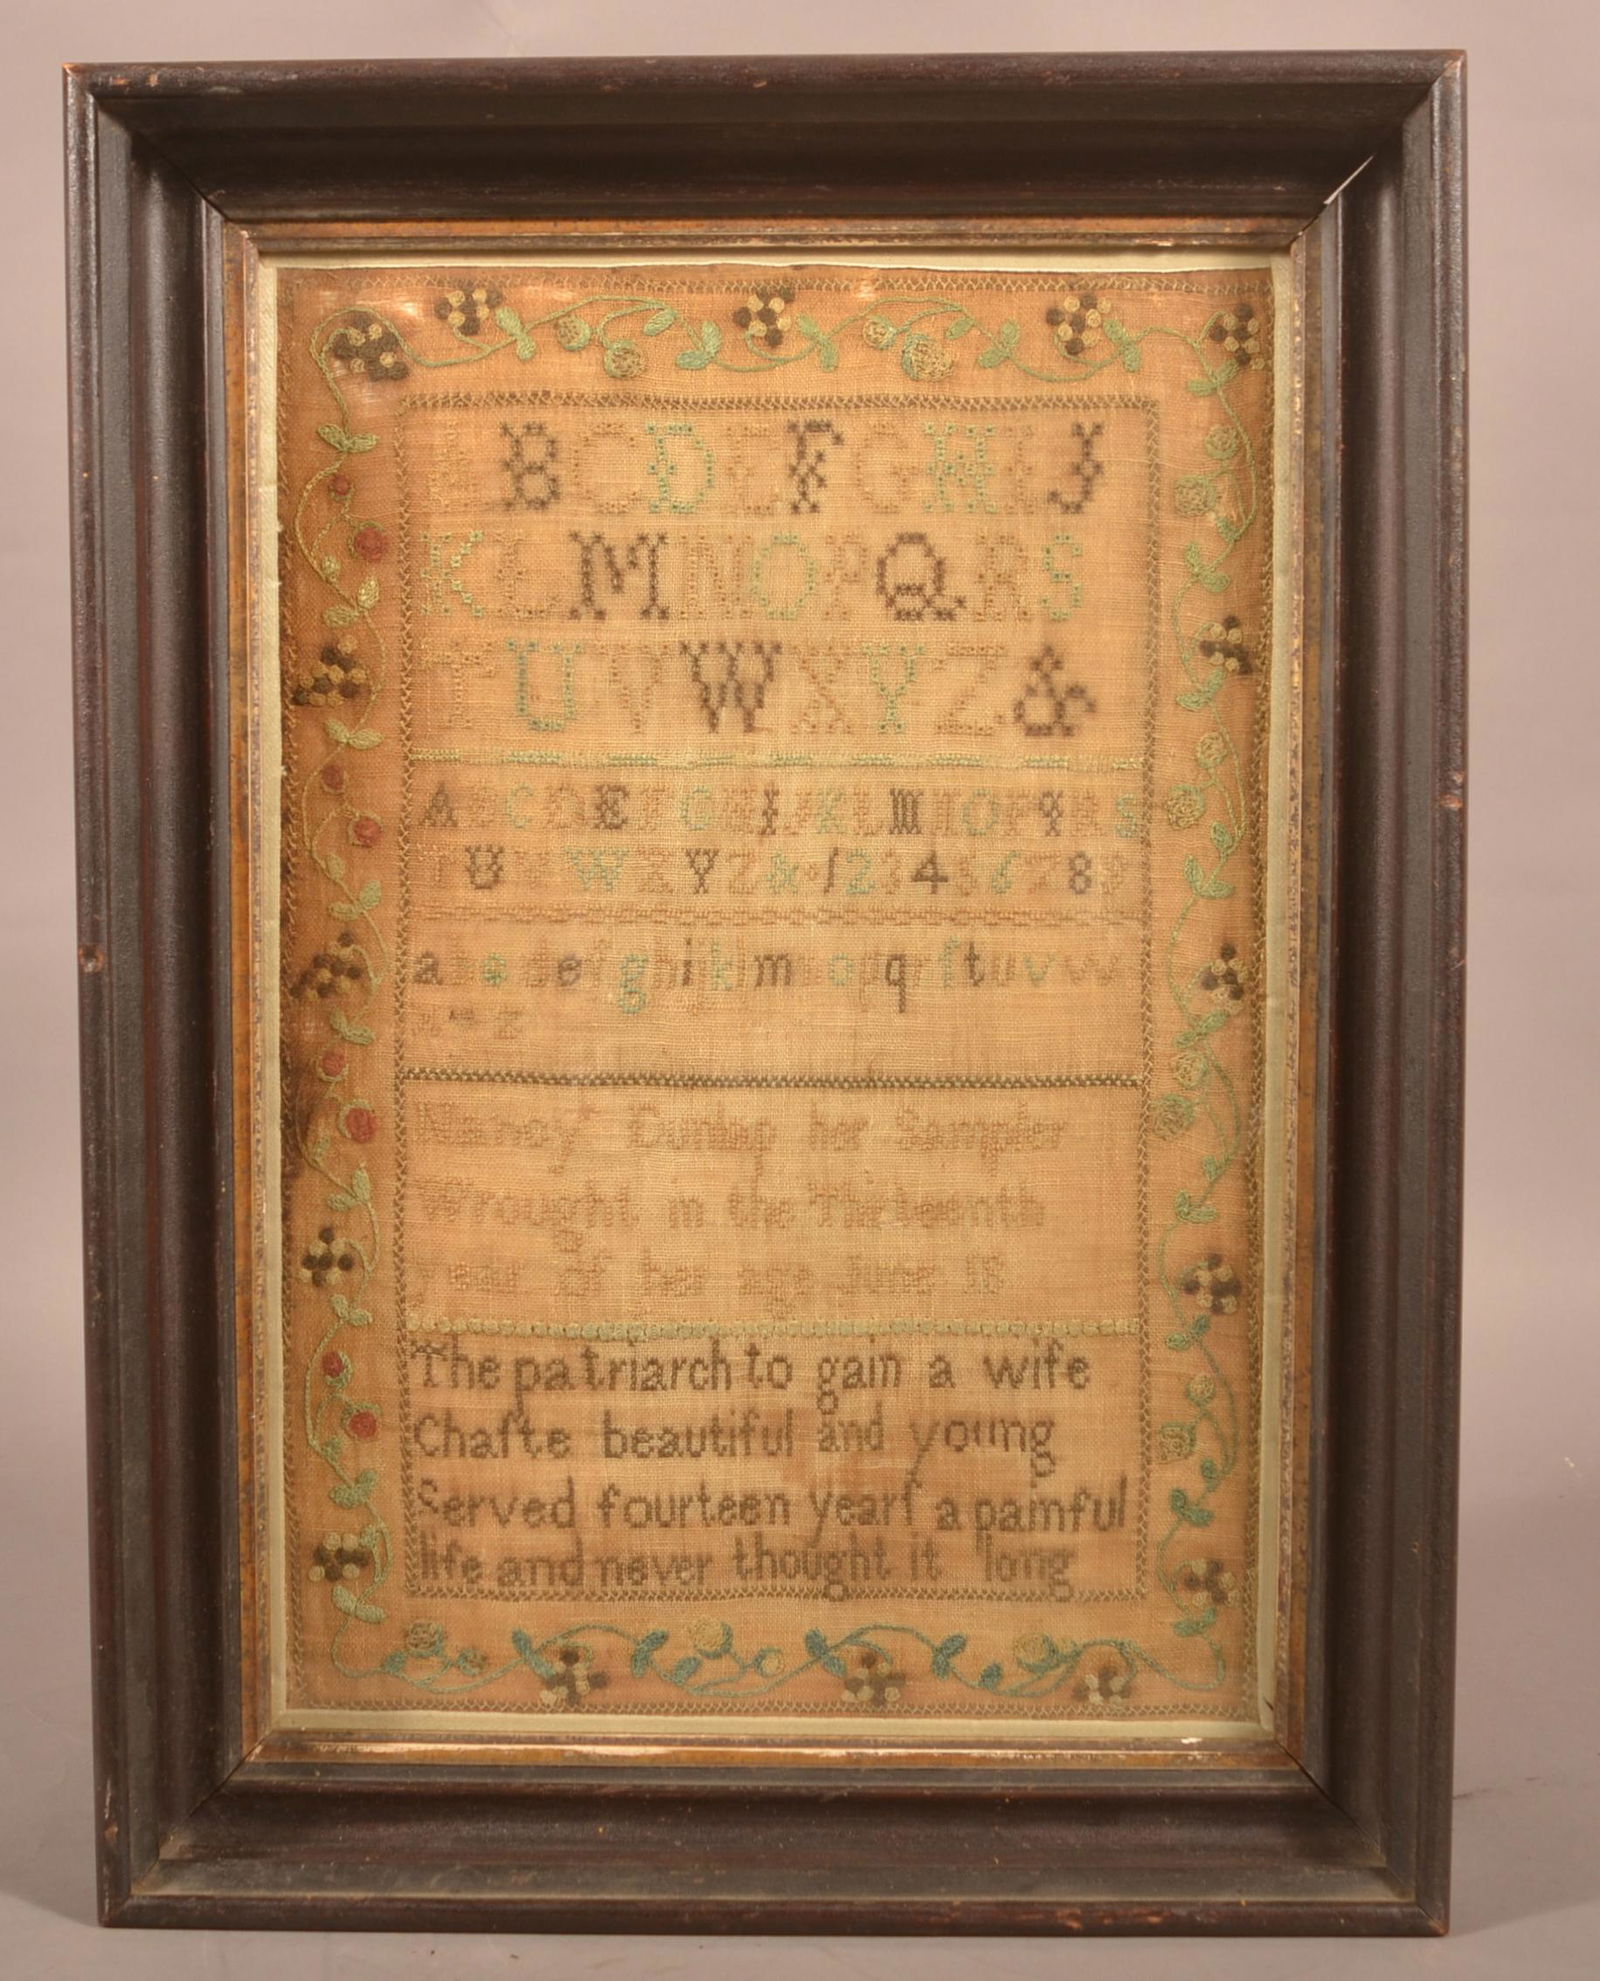 A B C D E F G H I J
K L M N O P Q R S
T U V W X Y Z &
A B C D E F G H I J K L M N O P Q R S
T U V W X Y Z & 1 2 3 4 5 6 7 8 9
a b c d e f g h i j k l m n o p q r ſ t u v w
x y z
Nancy her Sampler
Wrought in the Thirteenth
year of her age June 18
The patriarch to gain a wife
Chaſte beautiful and young
Served fourteen yearſ a painful
life and never thought it long